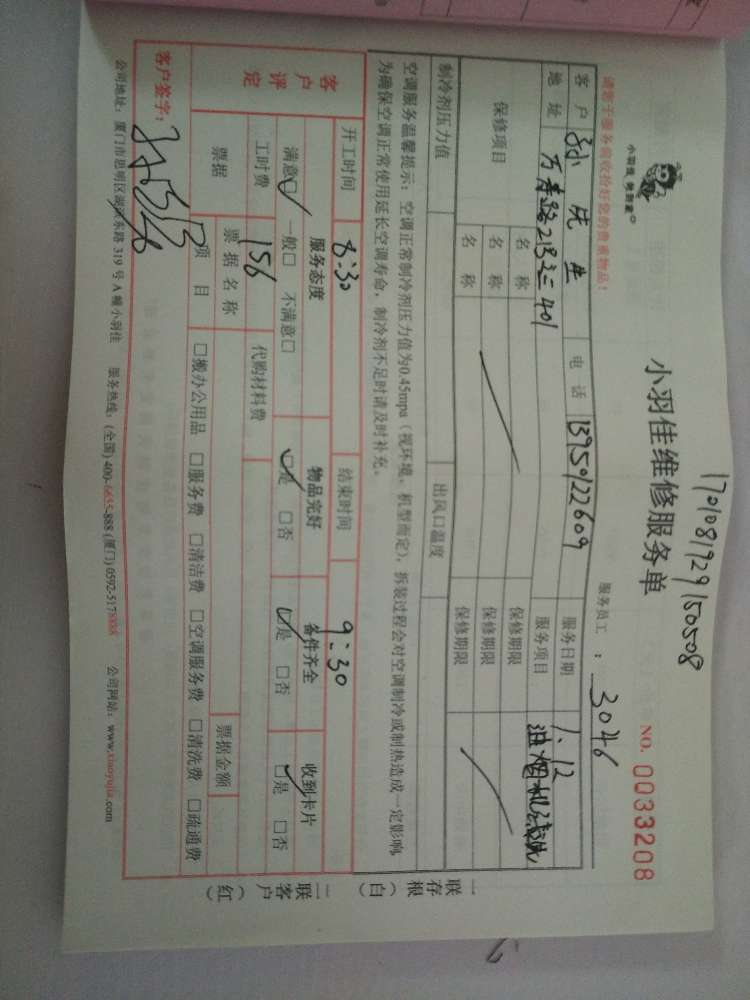 1701081929150508
小羽佳 帮到家
小羽佳维修服务单
NO. 0033208
请您于服务前收拾好您的贵重物品！
服务员工：3046
客户 孙先生 电话 13950122609 服务日期 1.12
地址 万寿路 401 服务项目 油烟机清洗
保修项目 名称 保修期限
名称 保修期限
名称 保修期限
制冷剂压力值 出风口温度
空调服务温馨提示：空调正常制冷剂压力值为0.45mpa（视环境、机型而定），拆装过程会对空调制冷或制热造成一定影响
为确保空调正常使用延长空调寿命，制冷剂不足时请及时补充。
开工时间 8:30 结束时间 9:30
客户评定 服务态度 物品完好 备件齐全 收到卡片
满意☑ 一般□ 不满意□ ☑是 □否 ☑是 □否 ☑是 □否
工时费 156 代购材料费
票据 票据名称 票据金额
□项目 □搬办公用品 □服务费 □清洁费 □空调服务费 □清洗费 □疏通费
客户签字：
公司地址：厦门市思明区湖滨东路 319 号 A 幢小羽佳 服务热线：(全国) 400-6655-888 (厦门) 0592-5178888 公司网站：www.xiaoyujia.com
一联存根（白）
二联客户（红）